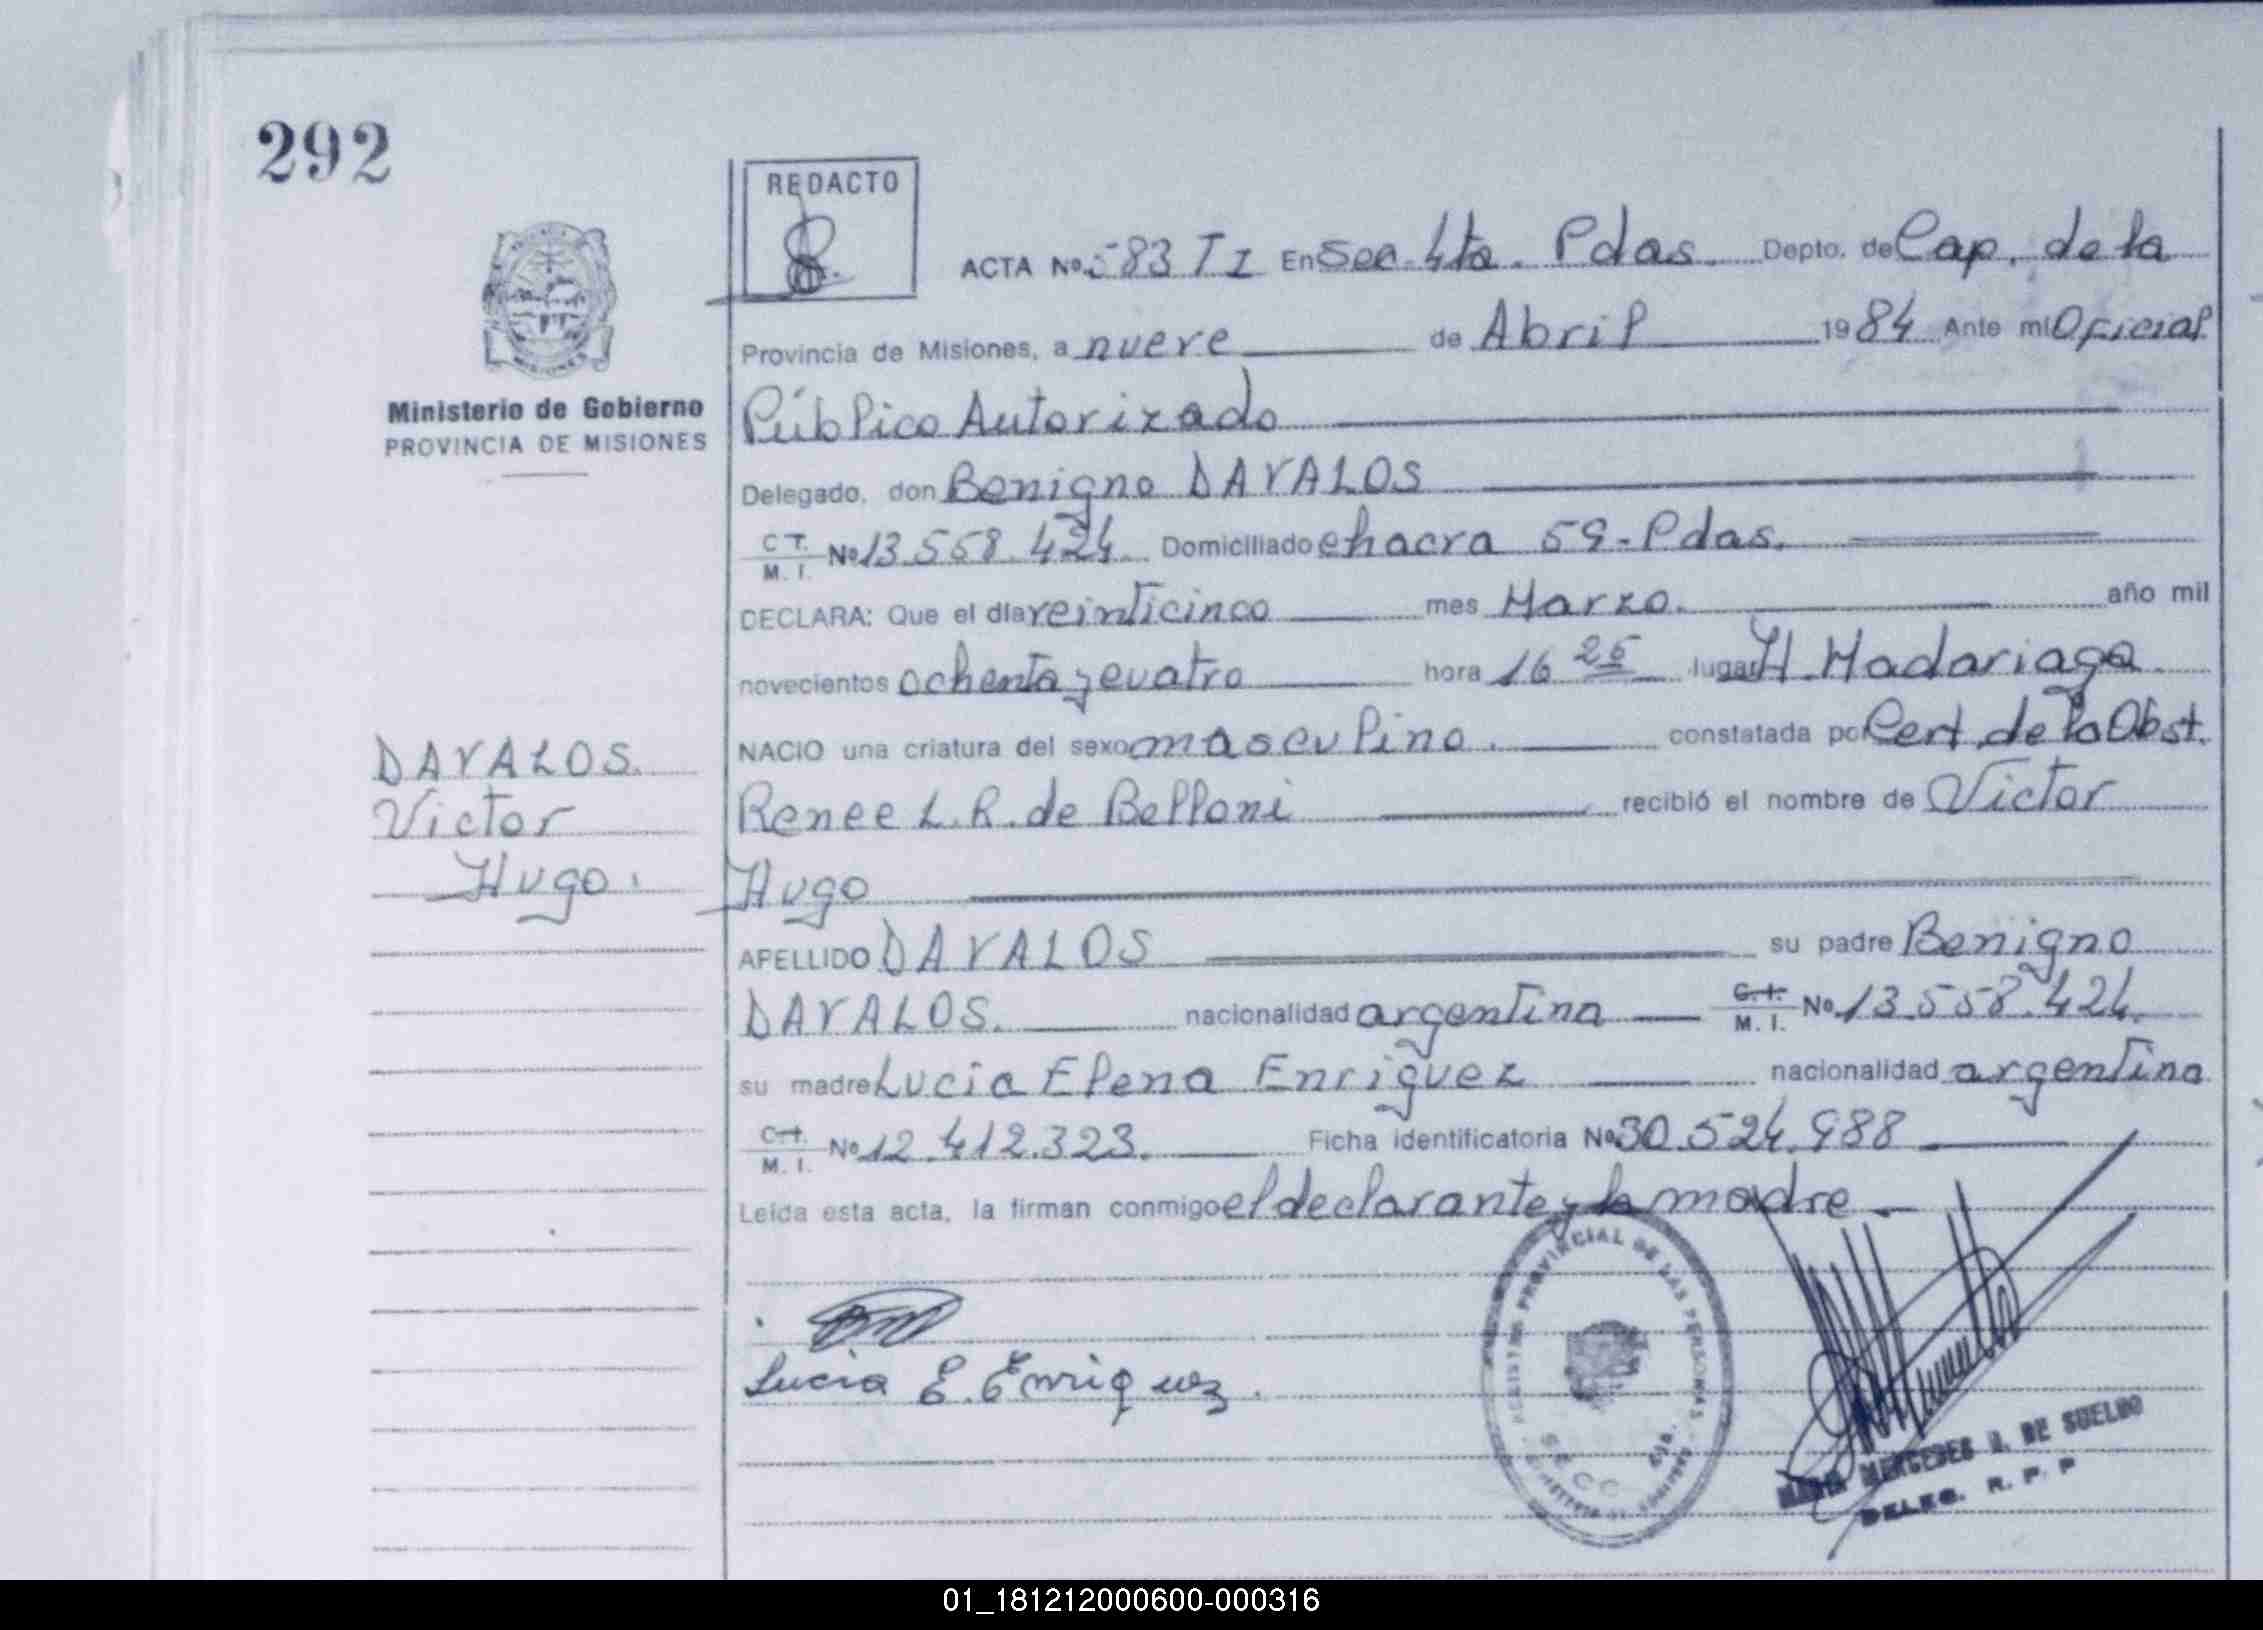 292
REDACTO
ACTA Nº 583 T I En Sec. 4ta. Pdas. Depto. de Cap. de la
Provincia de Misiones, a nueve de Abril 1984 Ante mi Oficial
Ministerio de Gobierno
PROVINCIA DE MISIONES
Público Autorizado
Delegado, don Benigno DAVALOS
C.I.
M. I. Nº 13.558.424 Domiciliado chacra 59-Pdas.
DECLARA: Que el día veinticinco mes Marzo. año mil
novecientos ochenta y cuatro hora 16 25 lugar H. Madariaga
DAVALOS.
Victor
Hugo.
NACIO una criatura del sexo masculino. constatada por Cert. de la Obst.
Renee L. R. de Belloni recibió el nombre de Victor
Hugo
APELLIDO DAVALOS su padre Benigno
DAVALOS. nacionalidad argentina C.I.
M. I. Nº 13.558.424.
su madre Lucia Elena Enriquez nacionalidad argentina
C.I.
M. I. Nº 12.412.323. Ficha identificatoria Nº 30.524.988
Leída esta acta, la firman conmigo el declarante y la madre
Lucia E. Enriquez.
REGISTRO PROVINCIAL DE LAS PERSONAS
MINISTERIO DE GOBIERNO
SECC.
MARIA MERCEDES D. DE SUELDO
DELEG. R. P. P
01_181212000600-000316